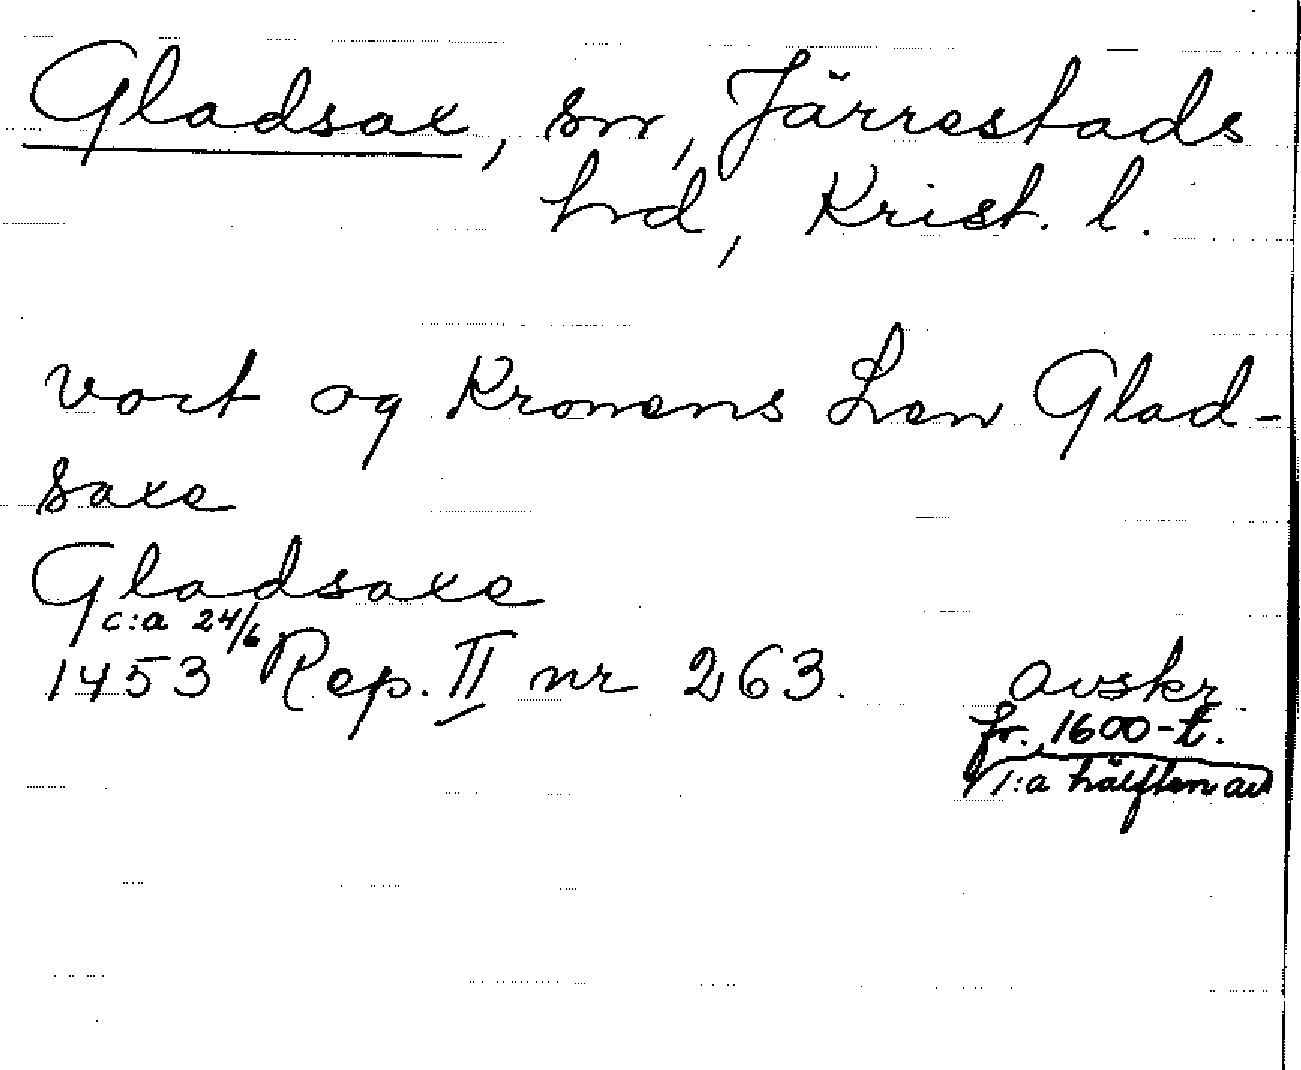 Gladsax, sn, Järrestads
hd, Krist. l.
vort og Kronens Len Glad-
saxe
Gladsaxe
c:a 24/6
1453 Rep. II nr 263. avskr
fr. 1600-t.
1:a hälften av